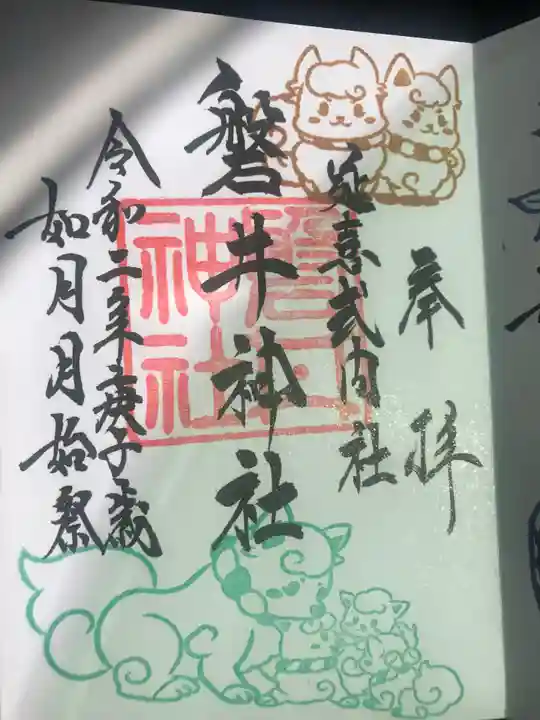 奉拝
延喜式内社
磐井神社
磐井神社
令和二年庚子歳
如月月始祭